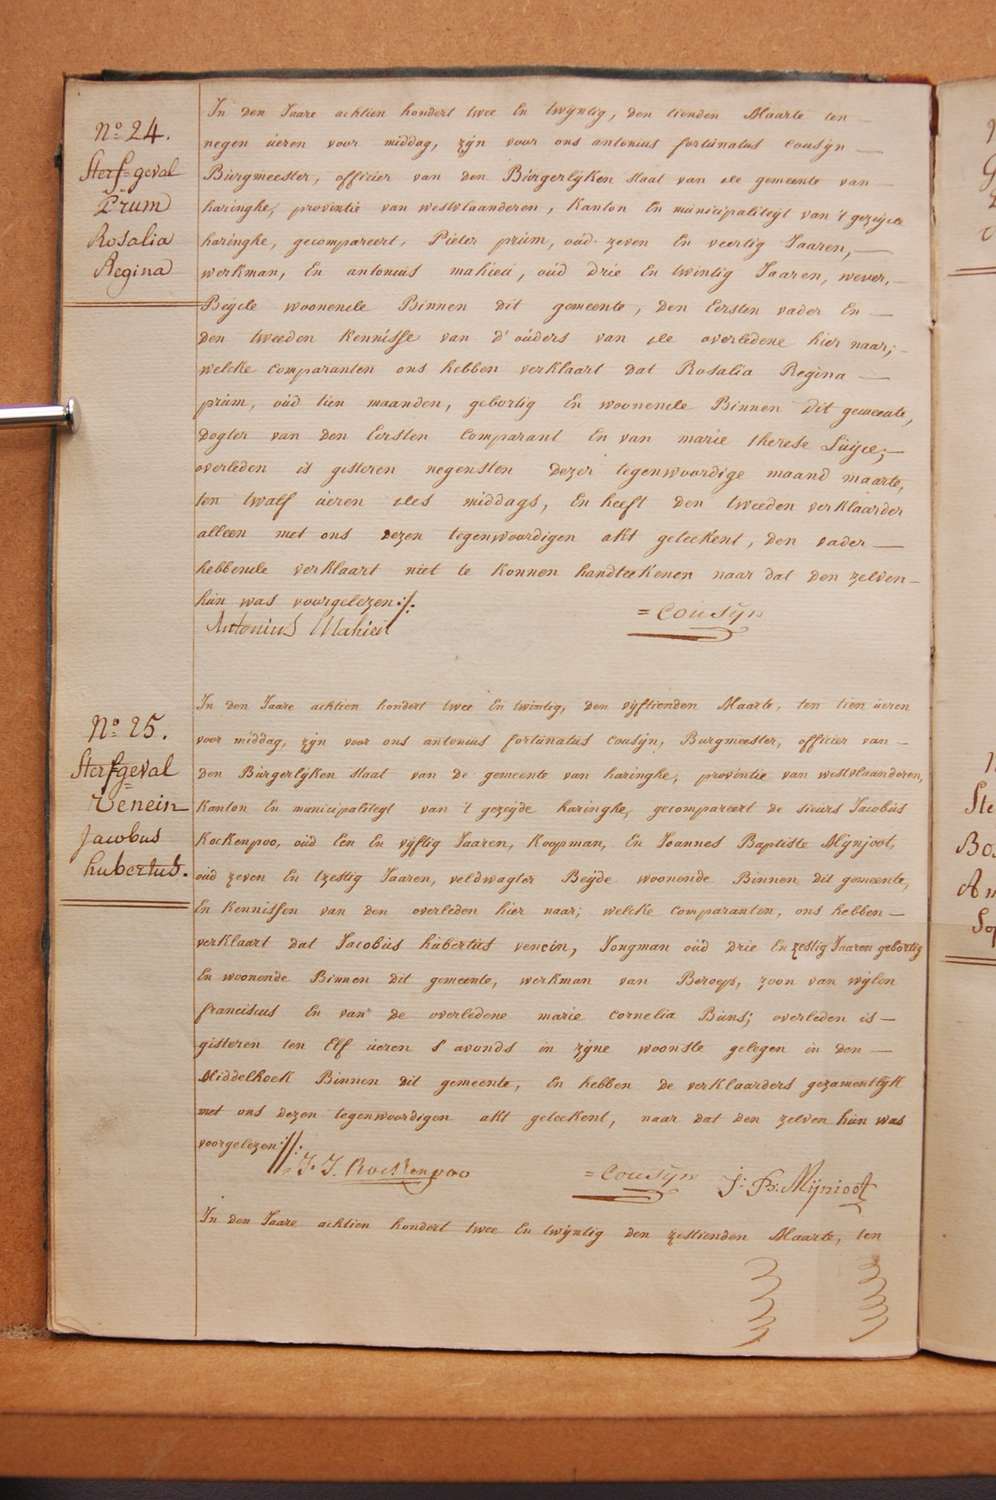 N.o 24.
Sterf-geval
Prüm
Rosalia
Regina
In den Jaare achtien hondert twee En twijntig, den tienden Maarte ten —
negen üeren voor middag, zijn voor ons antonius fortünatus Cousijn —
Bürgmeester, officier van den Bürgerlijken staat van de gemeente van —
haringhe, provintie van westvlaanderen, Kanton En münicipaliteijt van 't gezeijde
haringhe, gecompareert, Pieter prüm, oüd zeven En veertig Jaaren, —
werkman, En antonius mahieü, oüd drie En twintig Jaaren, wever, —
Beijde woonende Binnen dit gemeente, den Eersten vader En —
den tweeden Kennisse van d'oüders van de overledene hier naar; —
welcke Comparanten ons hebben verklaart dat Rosalia Regina —
prüm, oüd tien maanden, gebortig En woonende Binnen dit gemeente,
dogter van den Eersten Comparant En van marie therese Lüijce; —
overleden is gisteren negensten dezer tegenwoordige maand maarte,
ten twalf üeren des middags, En heeft den tweeden verklaarder
alleen met ons dezen tegenwoordigen akt geteekent, den vader —
hebbende verklaart niet te Konnen handteekenen naar dat den zelven —
hün was voorgelezen :/.
Antonius Mahieu = Cousÿn
N.o 25.
Sterfgeval
Venein
Jacobus
hubertus.
In den Jaare achtien hondert twee En twintig, den vijftienden Maarte, ten tien üeren
voor middag, zijn voor ons antonius fortünatus Cousijn, Burgmeester, officier van —
den Bürgerlijken staat van de gemeente van haringhe, provintie van westvlaanderen,
Kanton En municipaliteyt van 't gezeijde haringhe, gecompareert de sieurs Jacobüs
Kockenpoo, oüd Een En vijftig Jaaren, Koopman, En Joannes Baptiste Mijnjoot,
oüd zeven En tzestig Jaaren, veldwagter Beijde woonende Binnen dit gemeente,
En Kennissen van den overleden hier naar; welcke Comparanten, ons hebben —
verklaart dat Jacobüs hübertüs venein, Jongman oüd drie En zestig Jaaren gebortig
En woonende Binnen dit gemeente, werkman van Beroep, zoon van wijlen
franciscus En van de overledene marie Cornelia Büns; overleden is —
gisteren ten Elf üeren s'avonds in zijne woonste gelegen in den —
Middelhoek Binnen dit gemeente, En hebben de verklaarders gezamentlijk
met ons dezen tegenwoordigen akt geteekent, naar dat den zelven hün was
voorgelezen ://:
J. J. Kockenpoo = Cousÿn J: Bt: Mijnjoot
In den Jaare achtien hondert twee En twijntig den zestienden Maarte, ten